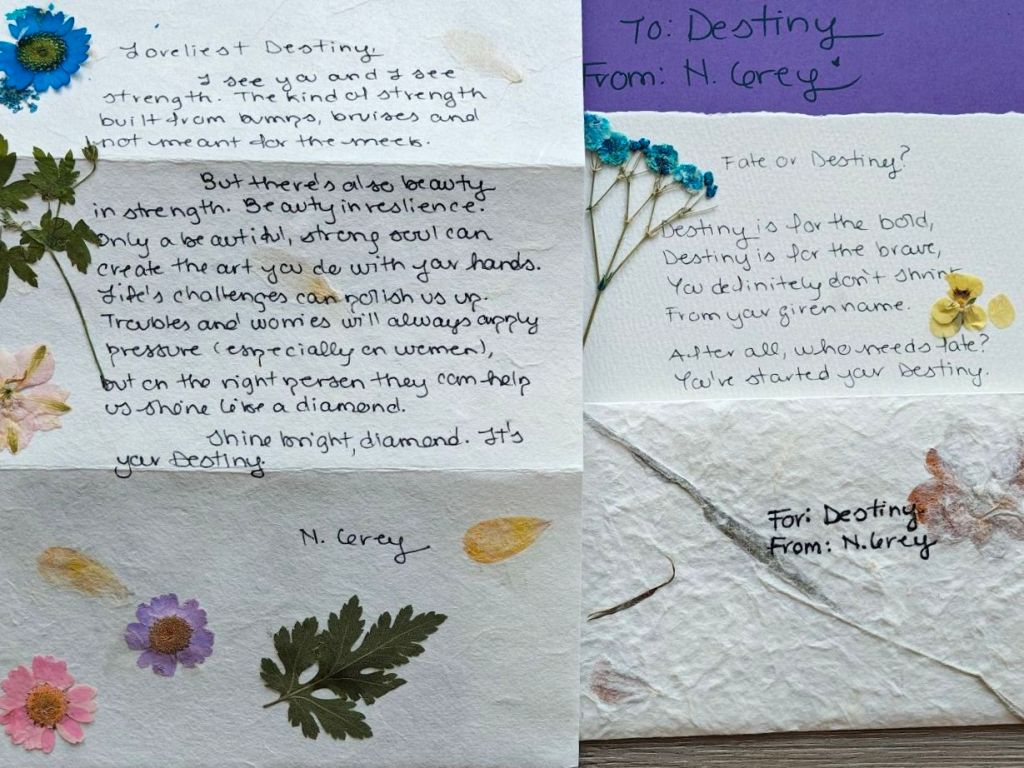 Loveliest Destiny,
I see you and I see
strength. The kind of strength
built from bumps, bruises and
not meant for the meek.
But there's also beauty
in strength. Beauty in reslience.
Only a beautiful, strong soul can
create the art you do with your hands.
Life's challenges can polish us up.
Troubles and worries will always apply
pressure (especially on women),
but on the right person they can help
us shine like a diamond.
Shine bright, diamond. It's
your Destiny.
N. Cerey
To: Destiny
From: N. Cerey
Fate or Destiny?
Destiny is for the bold,
Destiny is for the brave,
You definitely don't shrink
From your given name.
After all, who needs fate?
You've started your Destiny.
For: Destiny
From: N. Cerey